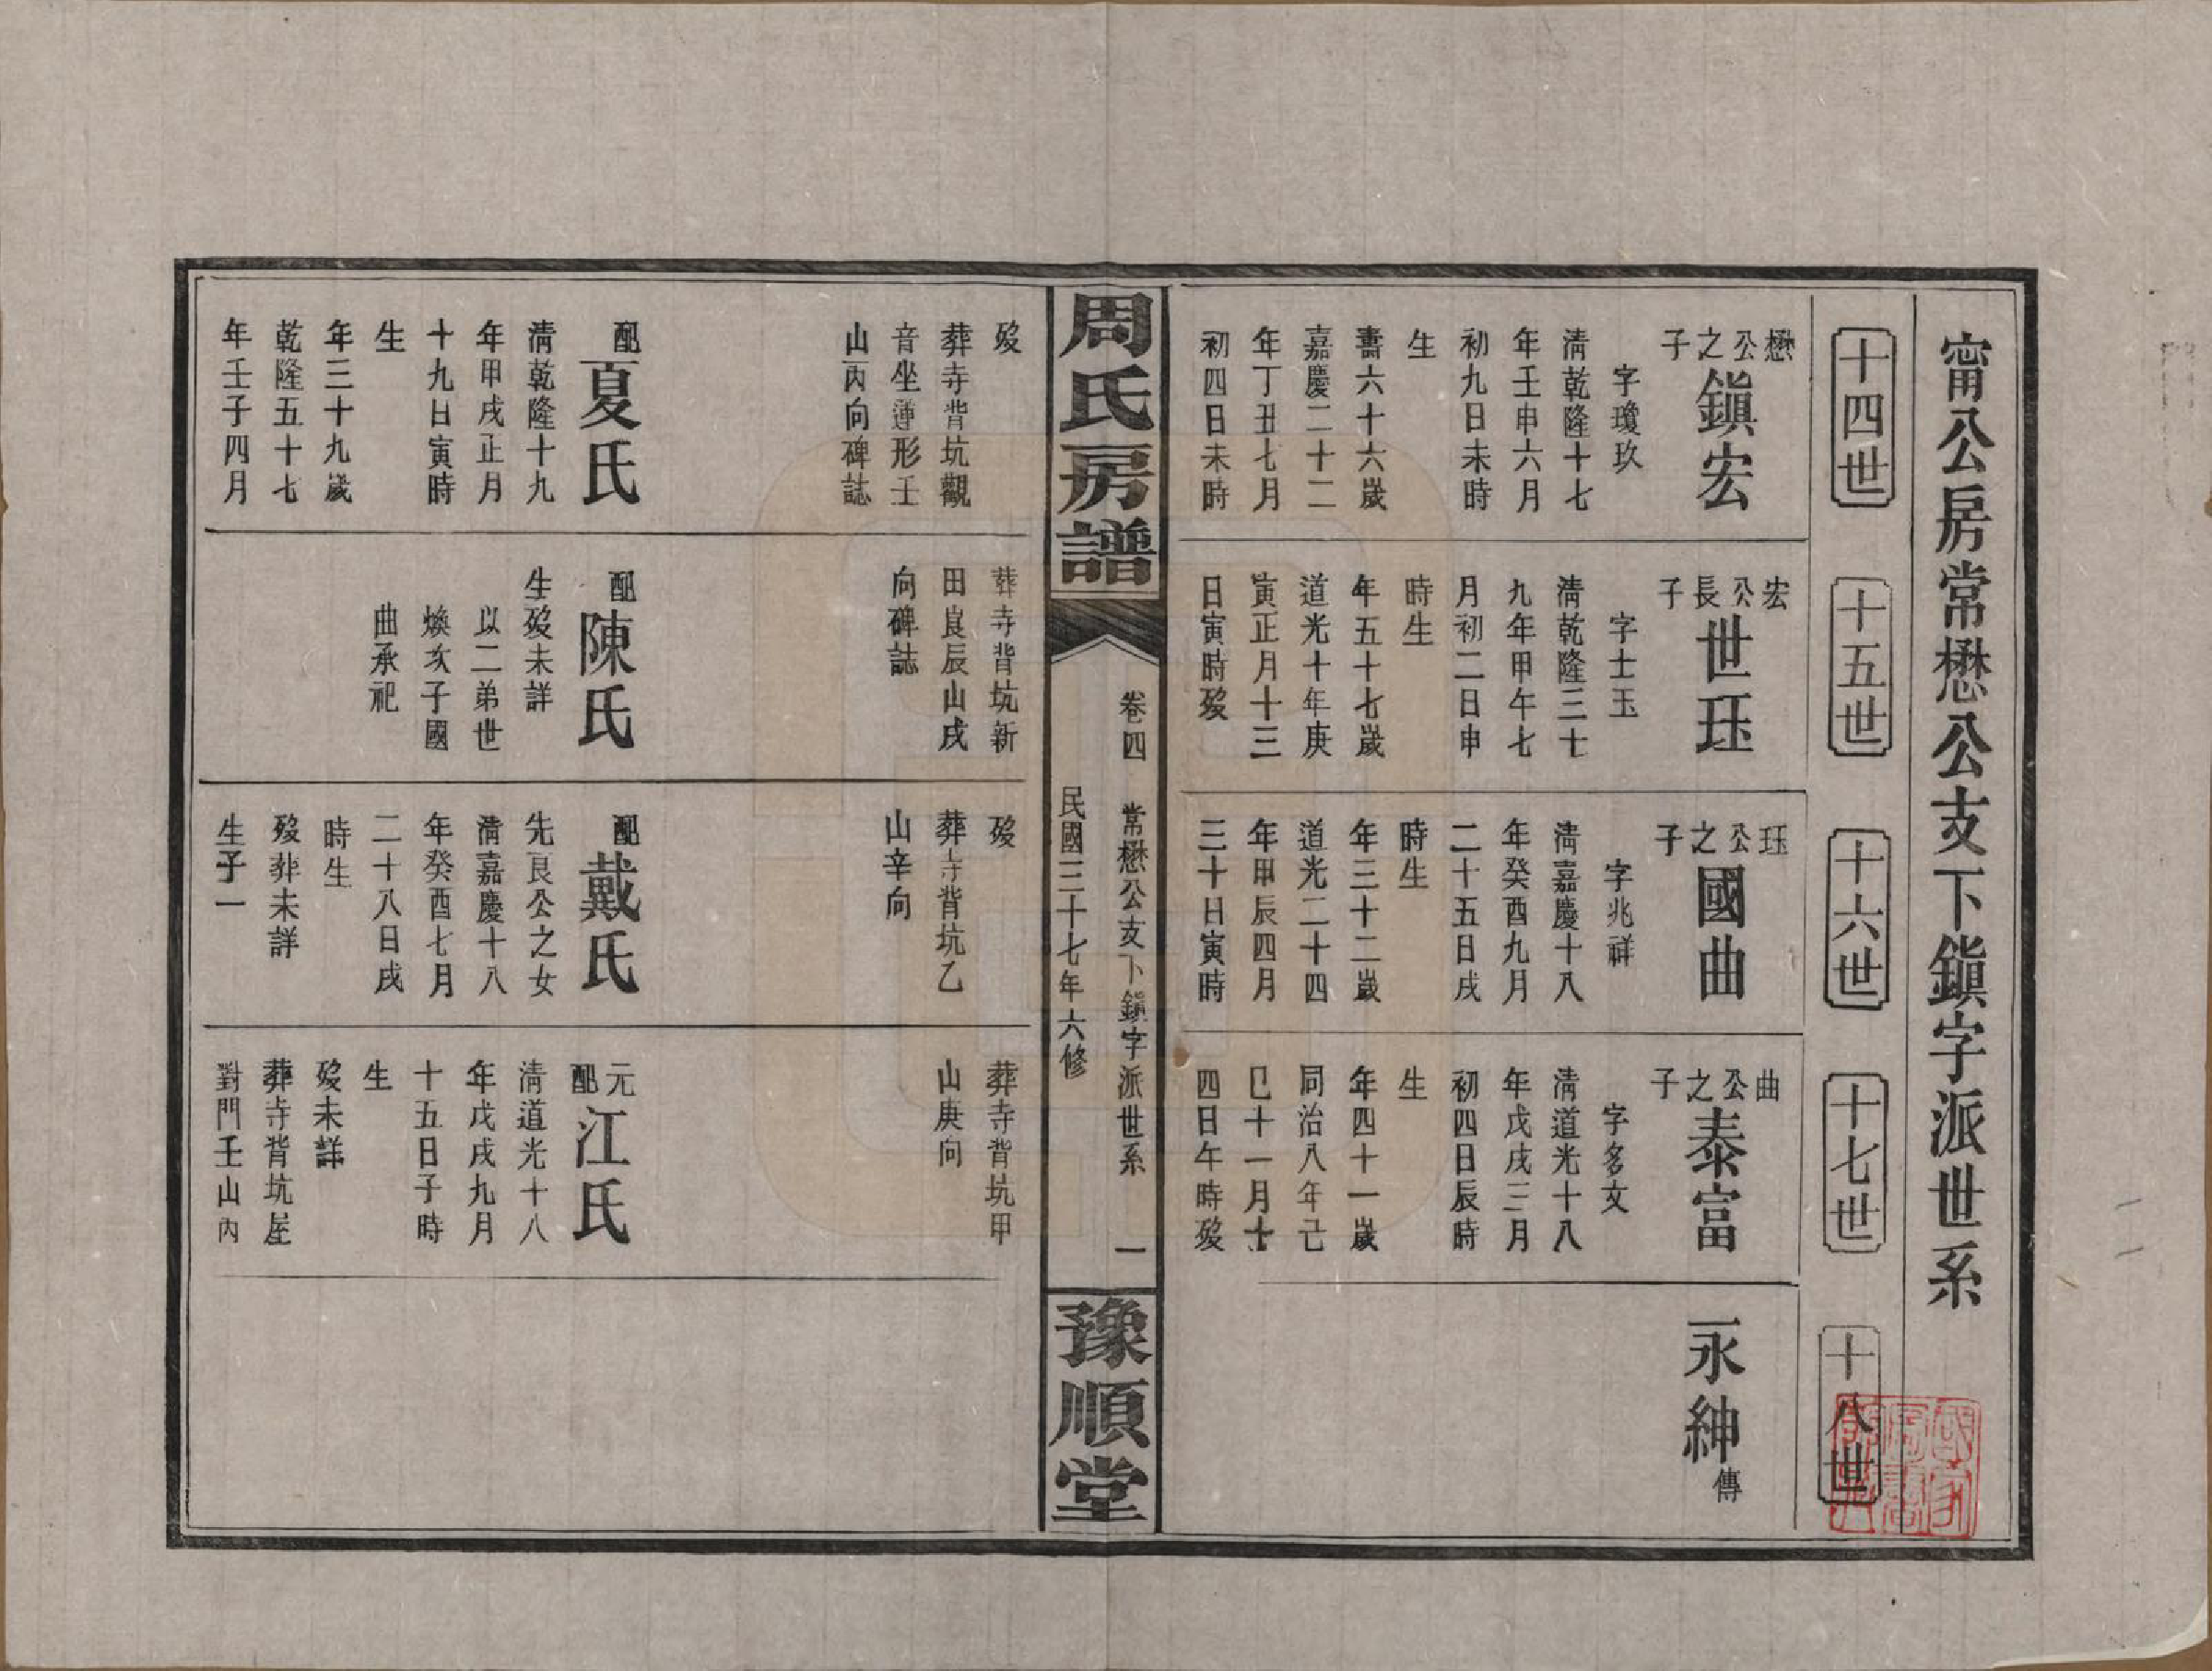 甯公房常懋公支下鎭字派世系
十四世
十五世
十六世
十七世
十八世
懋公之子
鎭宏
字瓊玖
淸乾隆十七
年壬申六月
初九日未時
生
壽六十六歲
嘉慶二十二
年丁丑七月
初四日未時
宏公長子
世珏
字士玉
淸乾隆三十
九年甲午七
月初二日申
時生
年五十七歲
道光十年庚
寅正月十三
日寅時歿
珏公之子
國曲
字兆祥
淸嘉慶十八
年癸酉九月
二十五日戌
時生
年三十二歲
道光二十四
年甲辰四月
三十日寅時
曲公之子
泰富
字多文
淸道光十八
年戊戌三月
初四日辰時
生
年四十一歲
同治八年己
巳十一月十
四日午時歿
永紳
傳
周氏房譜
卷四 常懋公支下鎭字派世系 一
民國三十七年六修
豫順堂
歿
葬寺背坑觀
音坐蓮形壬
山丙向碑誌
配
夏氏
淸乾隆十九
年甲戌正月
十九日寅時
生
年三十九歲
乾隆五十七
年壬子四月
葬寺背坑新
田艮辰山戌
向碑誌
配
陳氏
生歿未詳
以二弟世
煥次子國
曲承祀
歿
葬寺背坑乙
山辛向
配
戴氏
先良公之女
淸嘉慶十八
年癸酉七月
二十八日戌
時生
歿葬未詳
生子一
葬寺背坑甲
山庚向
元配
江氏
淸道光十八
年戊戌九月
十五日子時
生
歿未詳
葬寺背坑屋
對門壬山丙